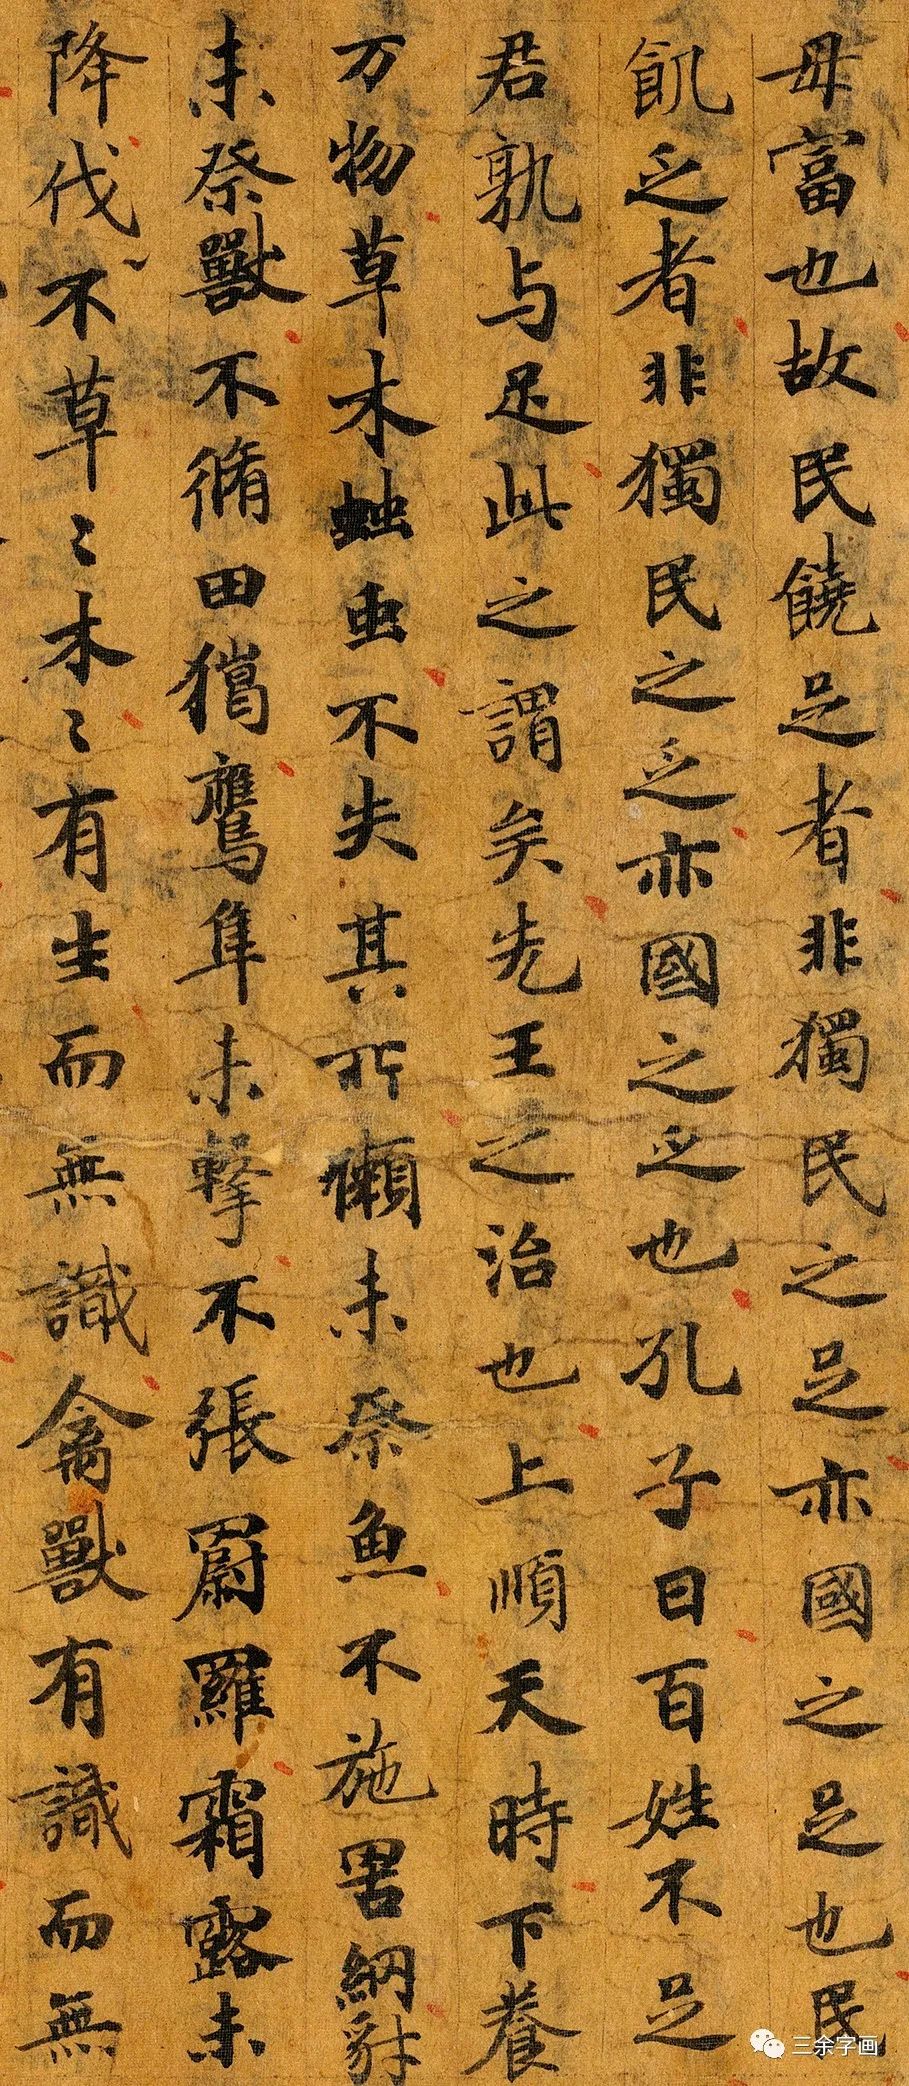 毋富也故民饒足者非獨民之足亦國之足也民
飢乏者非獨民之乏亦國之乏也孔子曰百姓不足
君孰与足此之謂矣先王之治也上順天時下養
万物草木蚰虫不失其所獺未祭魚不施罟網豺
未祭獸不脩田獦鷹隼未擊不張罻羅霜露未
降伐不草〻木〻有生而無識禽獸有識而無
三余字画